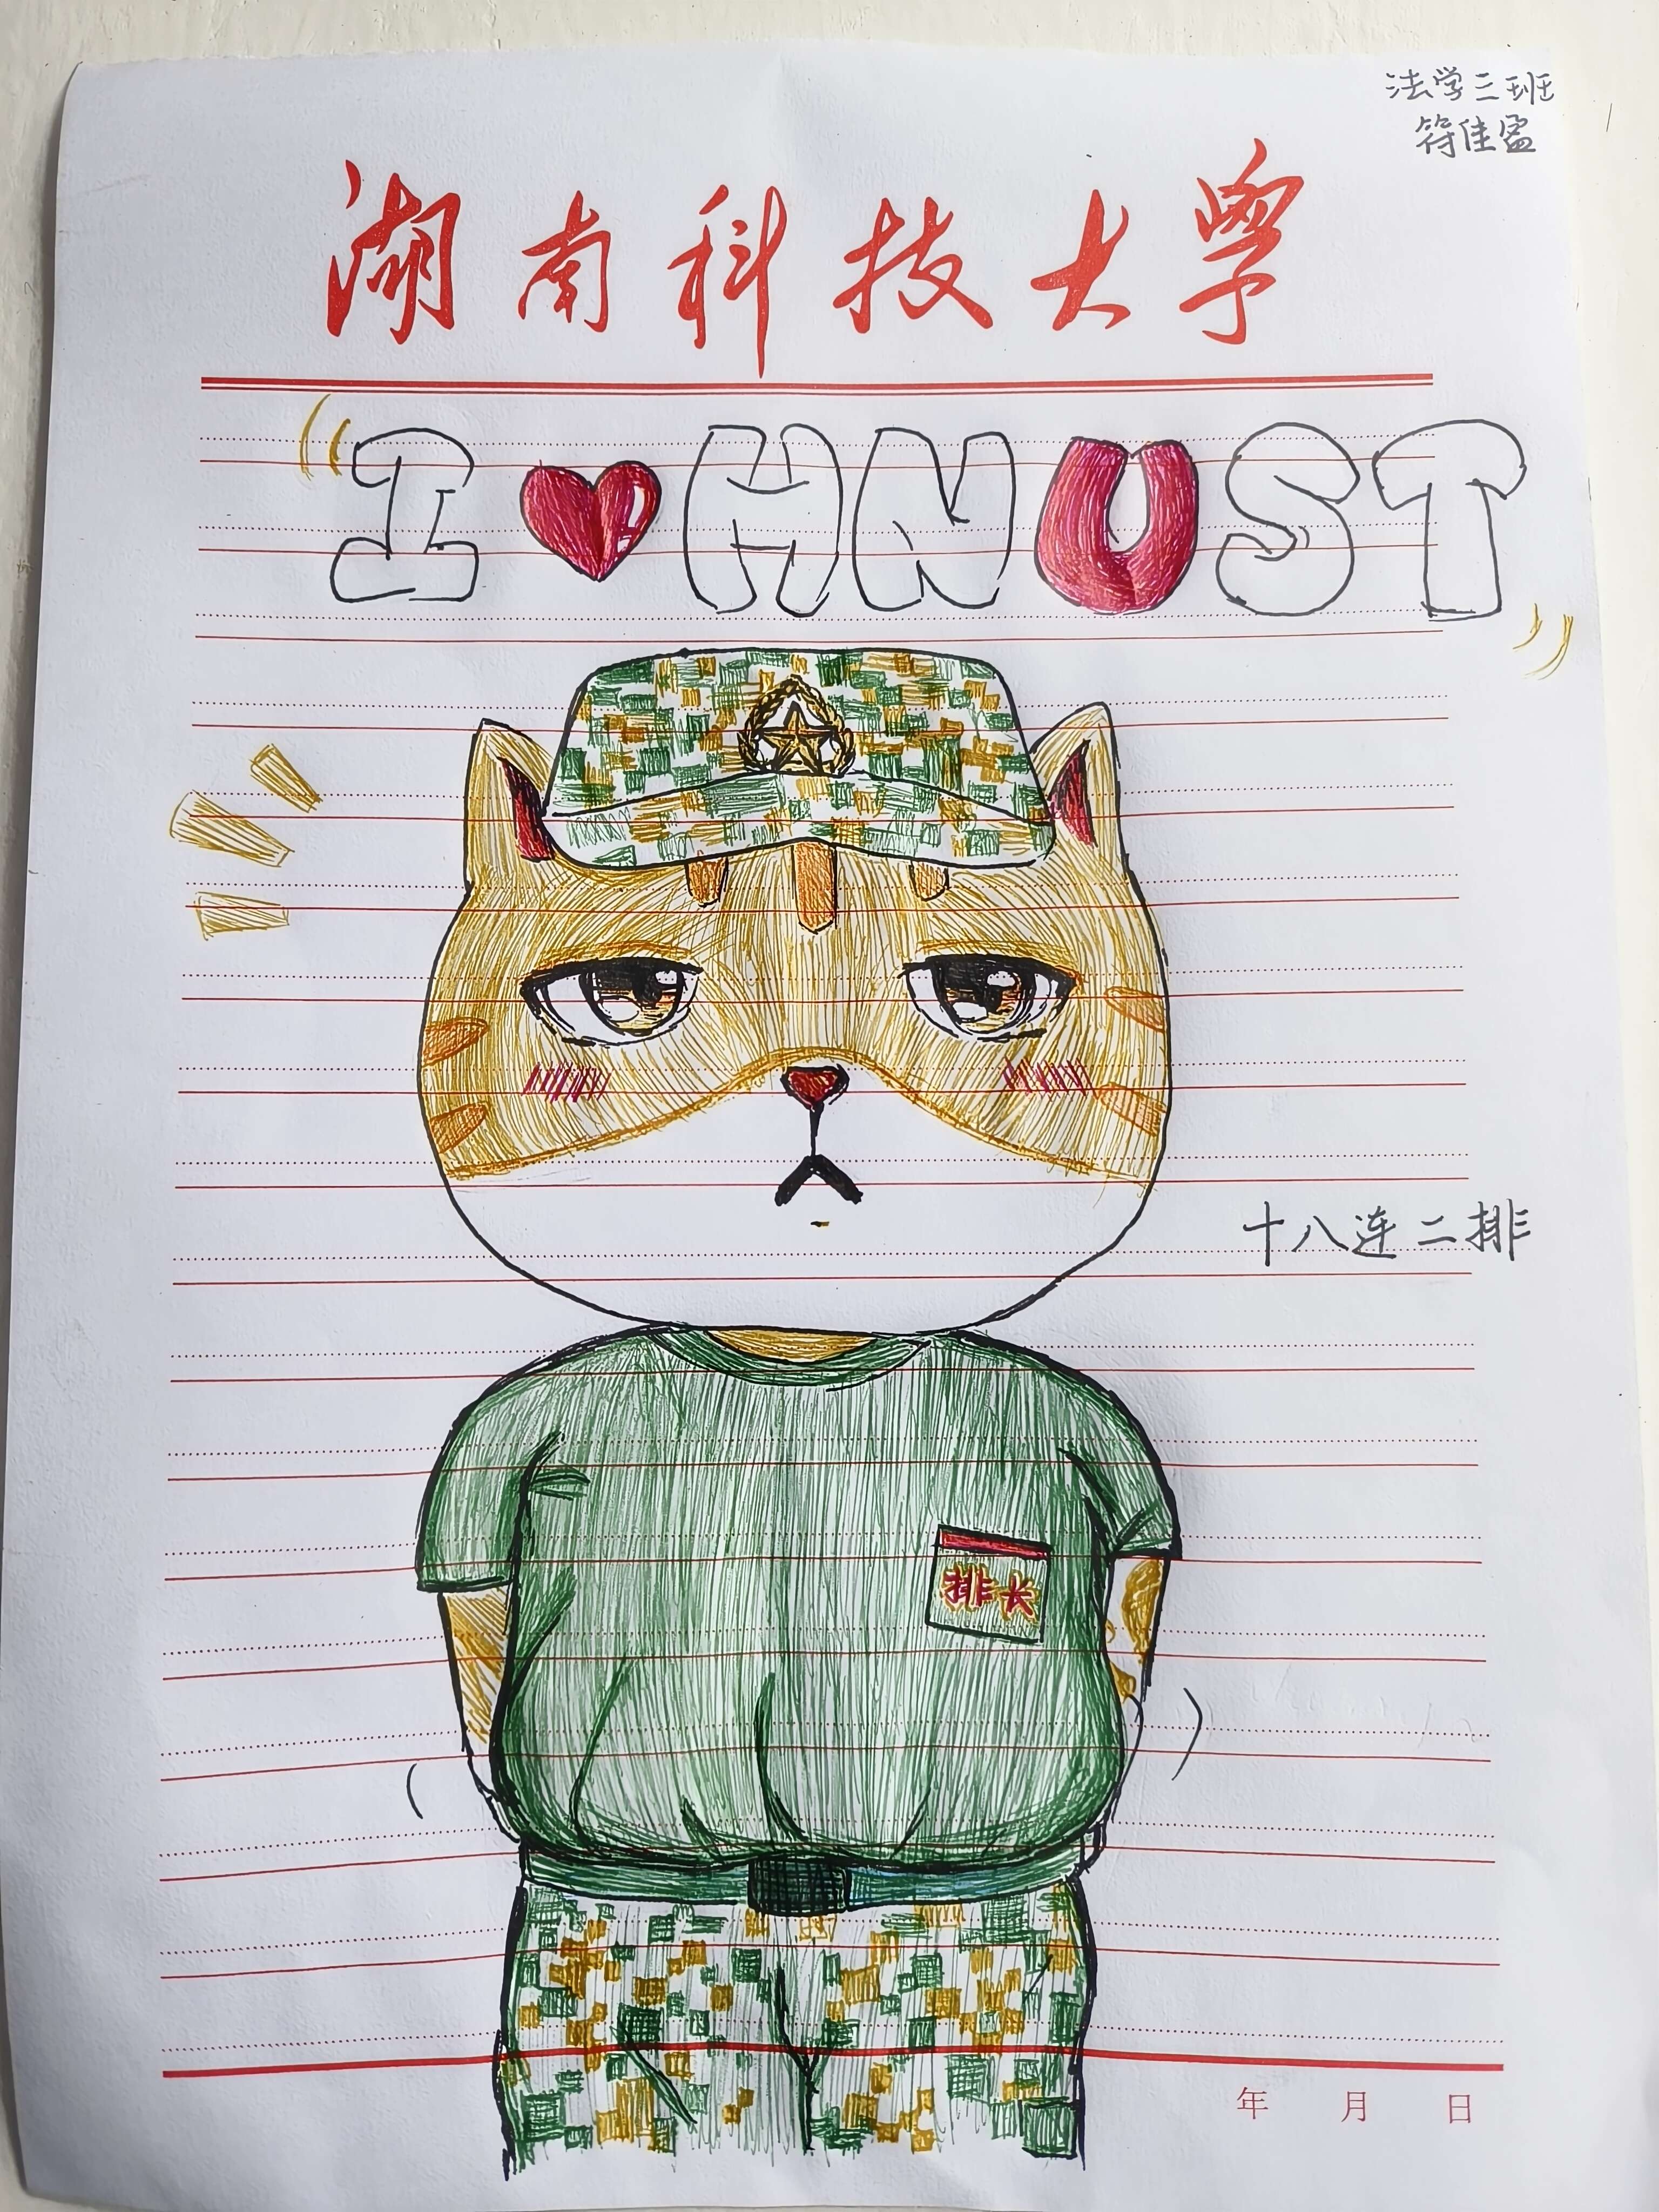 法学三班
符佳盈
湖南科技大学
“I ❤ HNUST”
十八连二排
排长
年 月 日